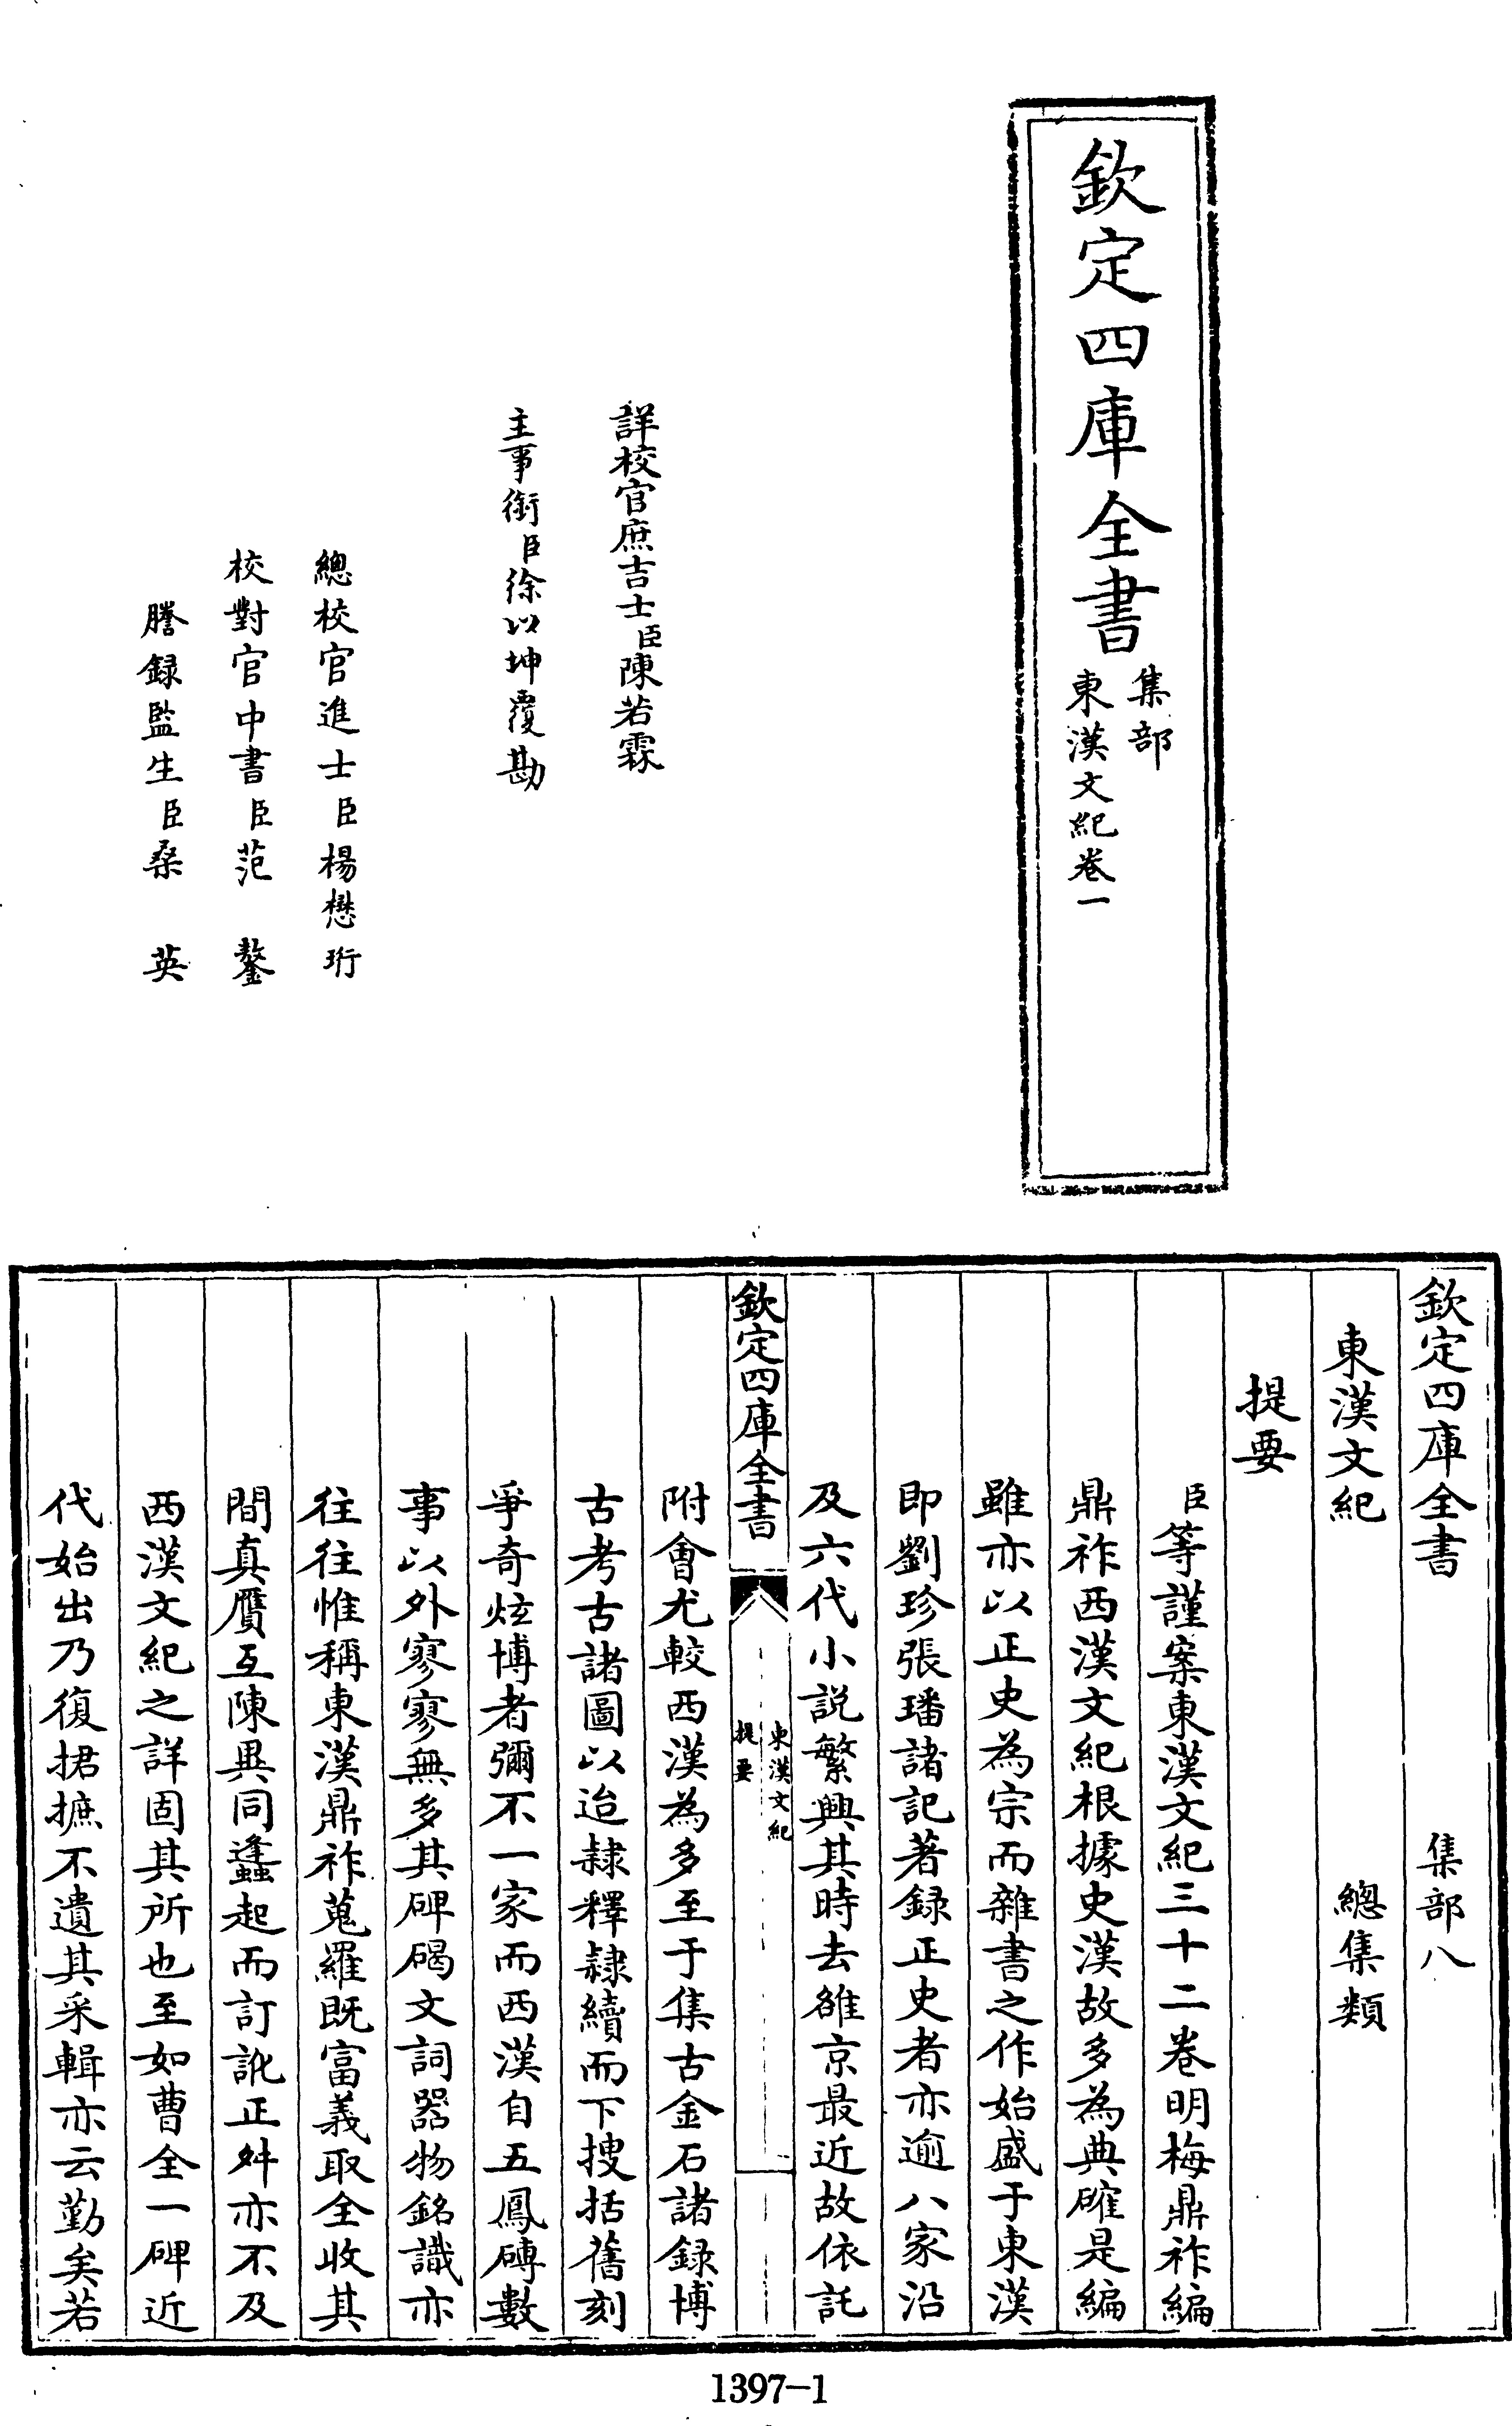 欽定四庫全書
集部
東漢文紀卷一
詳校官庶吉士臣陳若霖
主事銜臣徐以坤覆勘
總校官進士臣楊懋珩
校對官中書臣范鏊
謄録監生臣桑英
欽定四庫全書 集部八
東漢文紀 總集類
提要
臣等謹案東漢文紀三十二卷明梅鼎祚編
鼎祚西漢文紀根據史漢故多為典確是編
雖亦以正史為宗而雜書之作始盛于東漢
即劉珍張璠諸記著録正史者亦逾八家沿
及六代小説繁興其時去雒京最近故依託
欽定四庫全書
東漢文紀
提要
附會尤較西漢為多至于集古金石諸録博
古考古諸圖以迨隸釋隸續而下搜括舊刻
爭奇炫博者彌不一家而西漢自五鳳磚數
事以外寥寥無多其碑碣文詞器物銘識亦
往往惟稱東漢鼎祚蒐羅既富義取全收其
間真贋互陳異同蠭起而訂訛正舛亦不及
西漢文紀之詳固其所也至如曹全一碑近
代始出乃復捃摭不遺其采輯亦云勤矣若
1397-1